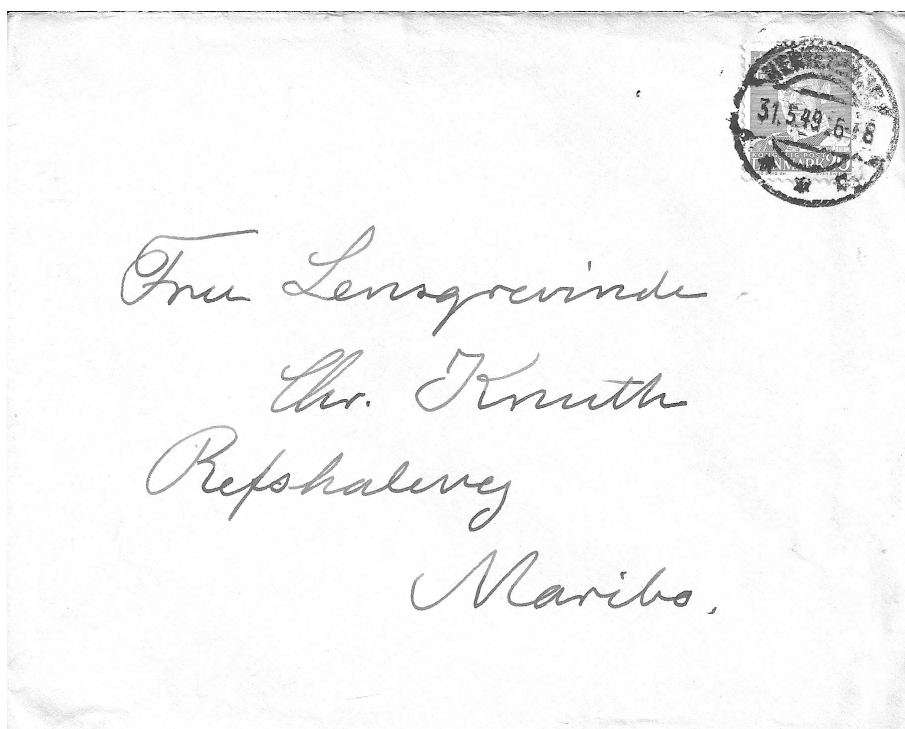 31.5.49. 6-8
DANMARK 20
Fru Lensgrevinde
Chr. Knuth
Refshalevej
Maribo.